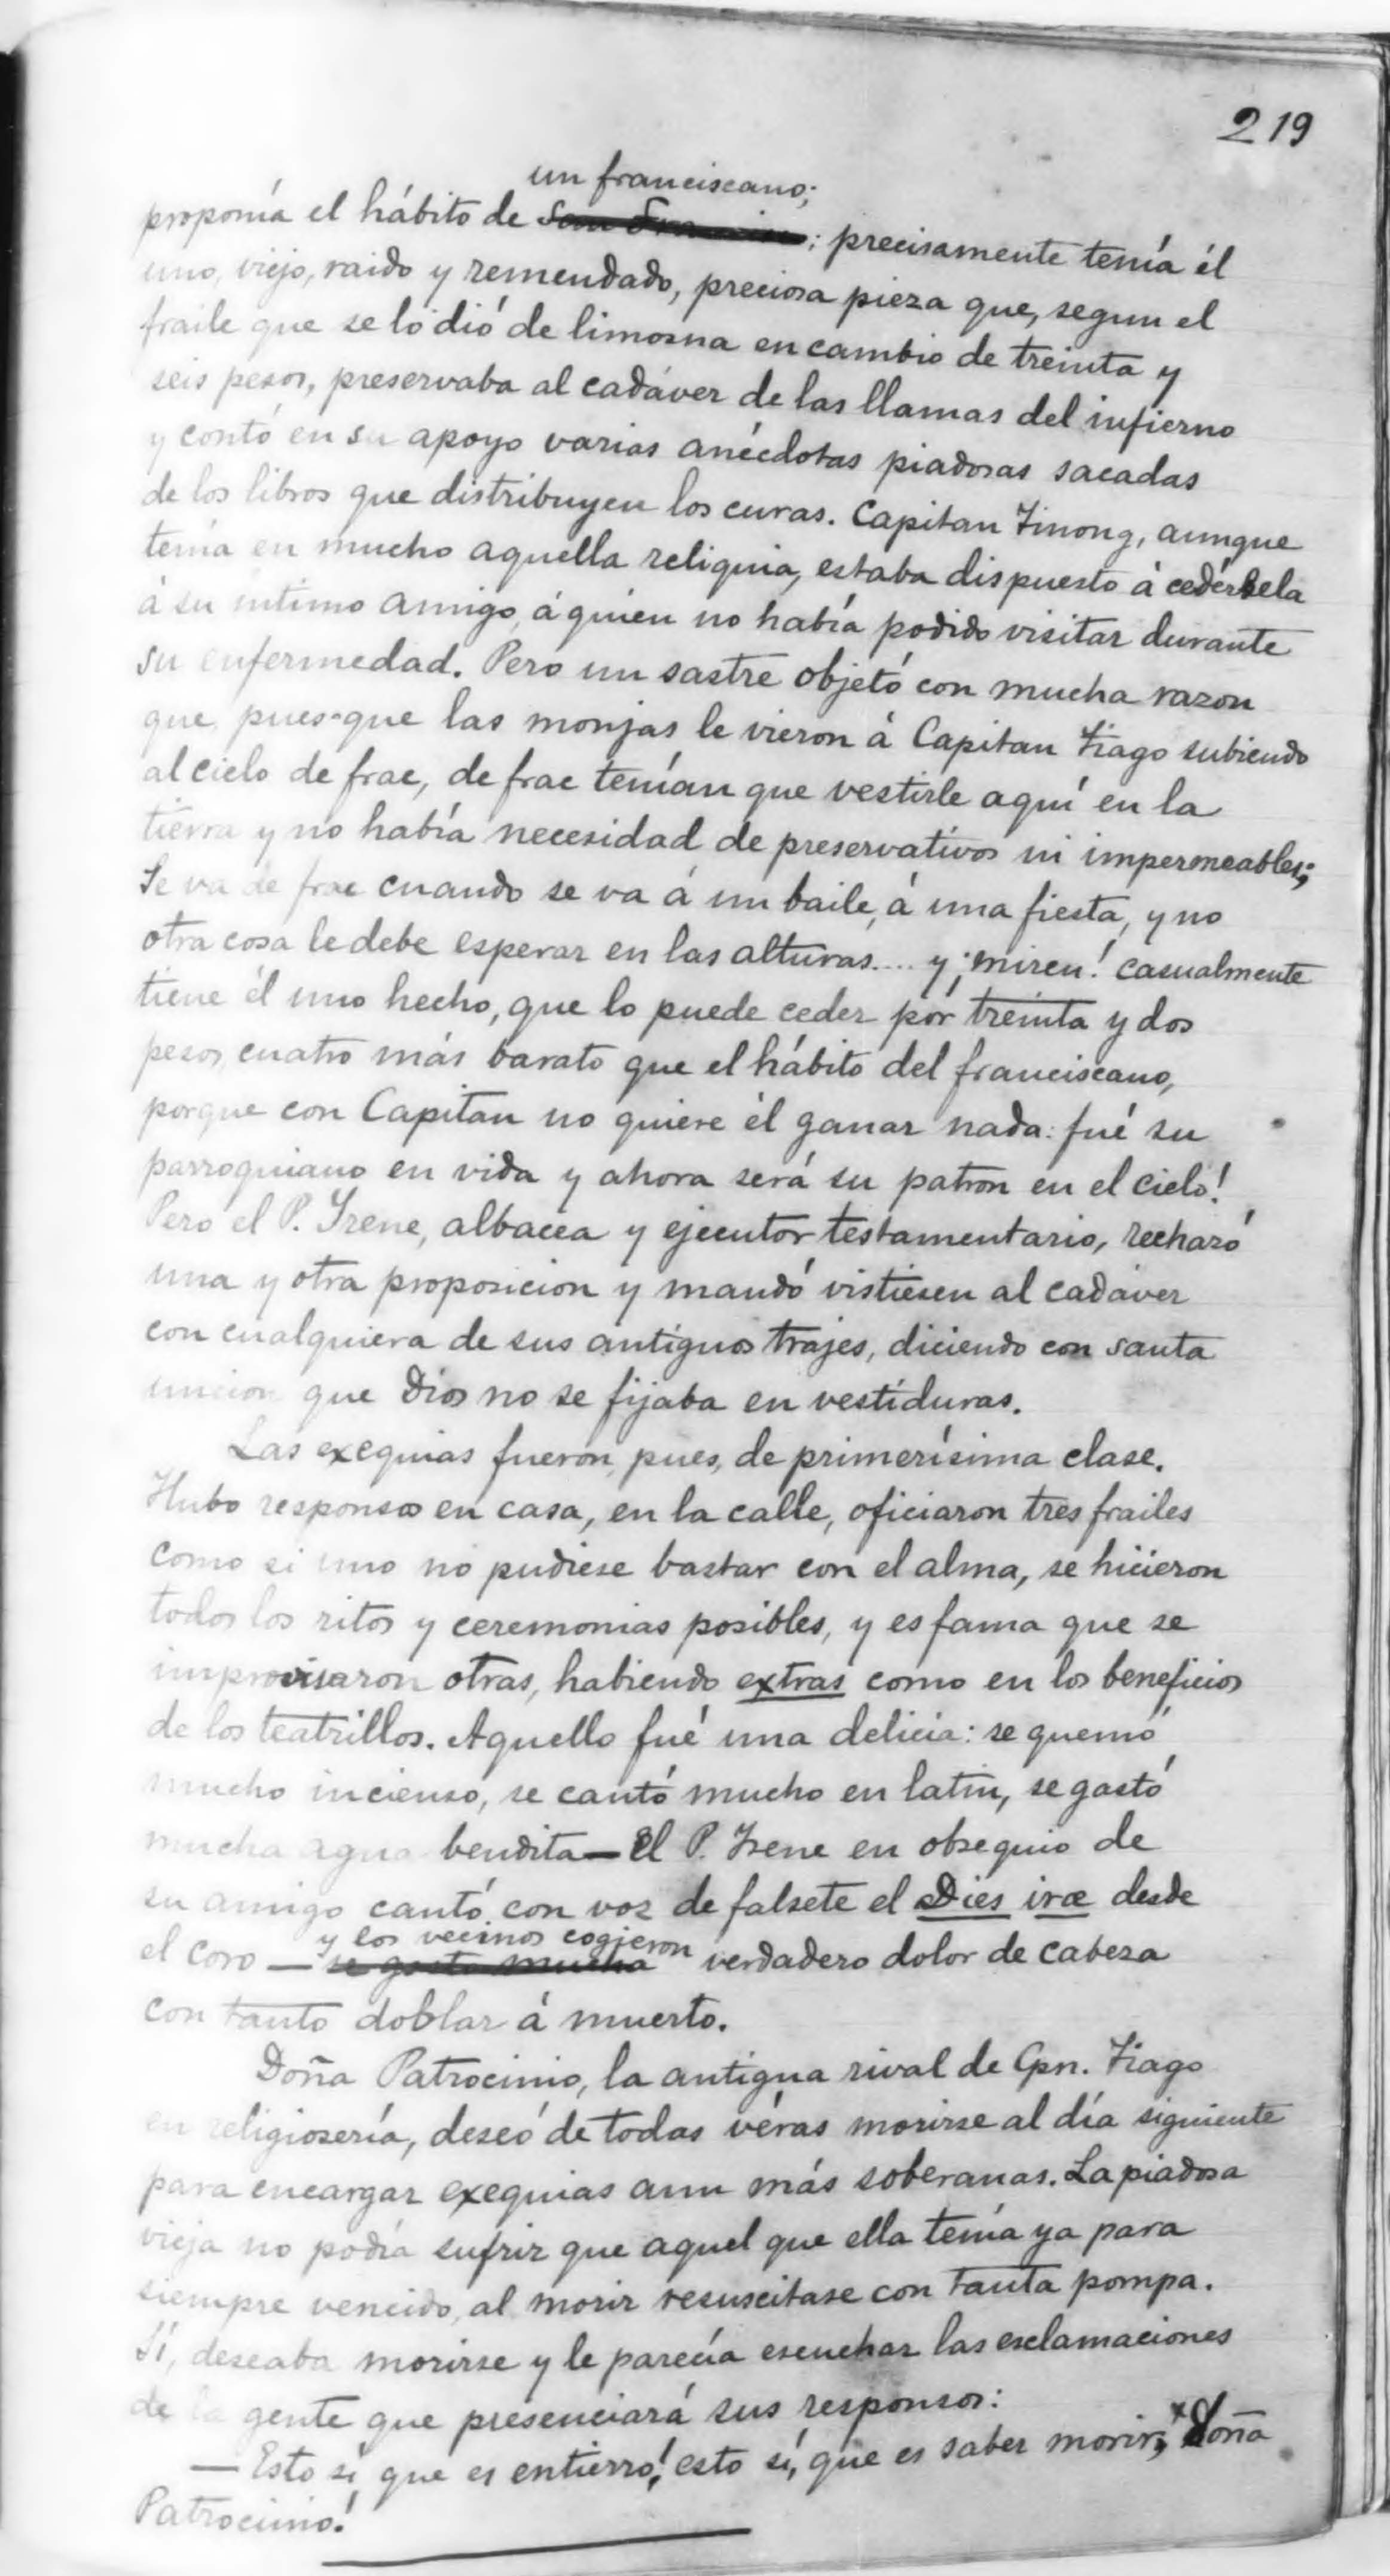 219
un franciscano;
proponía el hábito de San Francisco; precisamente tenía él
uno, viejo, raido y remendado, preciosa pieza que, segun el
fraile que se lo dió de limosna en cambio de treinta y
seis pesos, preservaba al cadáver de las llamas del infierno
y contó en su apoyo varias anécdotas piadosas sacadas
de los libros que distribuyen los curas. Capitan Tinong, aunque
tenía en mucho aquella reliquia, estaba dispuesto á cedérsela
á su intimo amigo, á quien no había podido visitar durante
su enfermedad. Pero un sastre objetó con mucha razon
que, pues-que las monjas le vieron á Capitan Tiago subiendo
al cielo de frac, de frac tenían que vestirle aquí en la
tierra y no había necesidad de preservativos ni impermeables;
Se va de frac cuando se va á un baile, á una fiesta, y no
otra cosa le debe esperar en las alturas.... y ¡miren! casualmente
tiene él uno hecho, que lo puede ceder por treinta y dos
pesos, cuatro más barato que el hábito del franciscano,
porque con Capitan no quiere él ganar nada: fué su
parroquiano en vida y ahora será su patron en el cielo!
Pero el P. Irene, albacea y ejecutor testamentario, rechazó
una y otra proposicion y mandó vistiesen al cadáver
con cualquiera de sus antiguos trajes, diciendo con santa
uncion que Dios no se fijaba en vestiduras.
Las exequias fueron, pues, de primerísima clase.
Hubo responsos en casa, en la calle, oficiaron tres frailes
como si uno no pudiese bastar con el alma, se hicieron
todos los ritos y ceremonias posibles, y es fama que se
improvisaron otras, habiendo extras como en los beneficios
de los teatrillos. Aquello fué una delicia: se quemó
mucho incienso, se cantó mucho en latin, se gastó
mucha agua bendita — El P. Irene en obsequio de
su amigo cantó con voz de falsete el Dies iræ desde
y los vecinos cogieron
el coro — se gasto mucha verdadero dolor de cabeza
con tanto doblar á muerto.
Doña Patrocinio, la antigua rival de Cpn. Tiago
en religiosería, deseó de todas véras morirse al día siguiente
para encargar exequias aun más soberanas. La piadosa
vieja no podía sufrir que aquel que ella tenía ya para
siempre vencido, al morir resuscitase con tanta pompa.
Sí, deseaba morirse y le parecía escuchar las esclamaciones
de la gente que presenciará sus responsos:
— Esto sí, que es entierro! esto sí, que es saber morir, Doña
Patrocinio!